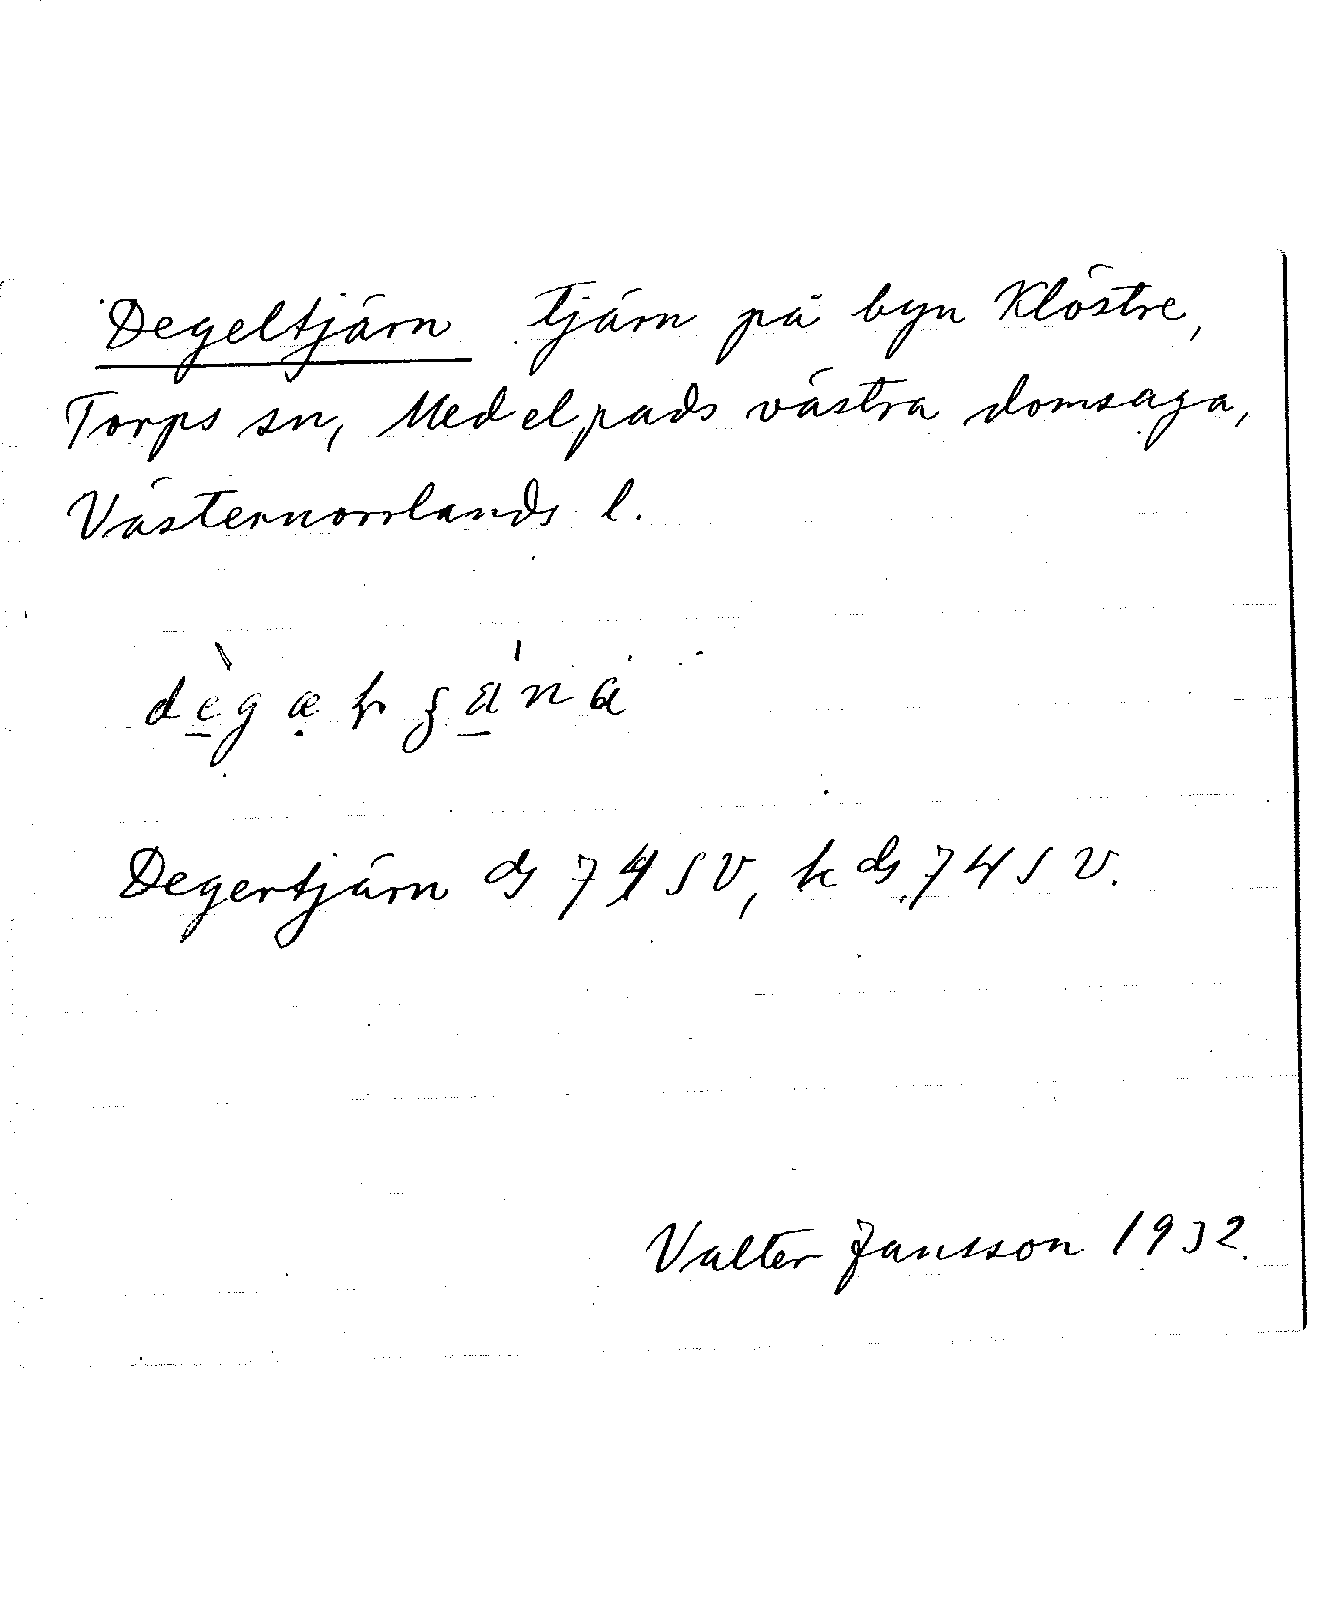 Degeltjärn tjärn på byn Klöstre,
Torps sn, Medelpads västra domsaga,
Västernorrlands l.
Degertjärn ds 74 SV, k ds 74 SV.
Valter Jansson 1932.